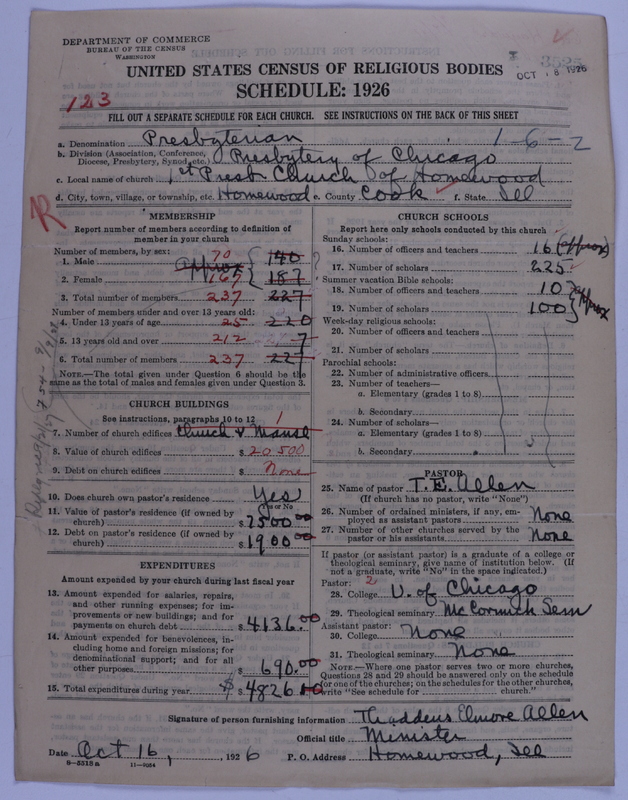 DEPARTMENT OF COMMERCE
BUREAU OF THE CENSUS
WASHINGTON
3525
OCT 18 1926
UNITED STATES CENSUS OF RELIGIOUS BODIES
SCHEDULE: 1926
123
FILL OUT A SEPARATE SCHEDULE FOR EACH CHURCH. SEE INSTRUCTIONS ON THE BACK OF THIS SHEET
1-6-2
a. Denomination Presbyterian
b. Division (Association, Conference, Diocese, Presbytery, Synod, etc.) Presbytery of Chicago
c. Local name of church 1st Presb Church of Homewood
d. City, town, village, or township, etc. Homewood e. County Cook f. State Ill
R
MEMBERSHIP
Report number of members according to definition of
member in your church
Number of members, by sex:
1. Male 70 140
Approx
2. Female 167 187
3. Total number of members 237 227
Number of members under and over 13 years old:
4. Under 13 years of age 25 220
5. 13 years old and over 212 7
6. Total number of members 237 227
NOTE.—The total given under Question 6 should be the
same as the total of males and females given under Question 3.
CHURCH BUILDINGS
See instructions, paragraphs 10 to 12 1
7. Number of church edifices Church & Manse
8. Value of church edifices $ 20500
9. Debt on church edifices $ None
10. Does church own pastor's residence Yes
Yes or No
11. Value of pastor's residence (if owned by
church) $ 7500.00
12. Debt on pastor's residence (if owned by
church) $ 1900.00
EXPENDITURES
Amount expended by your church during last fiscal year
13. Amount expended for salaries, repairs,
and other running expenses; for im-
provements or new buildings; and for
payments on church debt $ 4136.00
14. Amount expended for benevolences, in-
cluding home and foreign missions; for
denominational support; and for all
other purposes $ 690.00
15. Total expenditures during year $ 4826
CHURCH SCHOOLS
Report here only schools conducted by this church
Sunday schools:
16. Number of officers and teachers 16 (approx)
17. Number of scholars 225
Summer vacation Bible schools:
18. Number of officers and teachers 10
19. Number of scholars 100 Approx
Week-day religious schools:
20. Number of officers and teachers
21. Number of scholars
Parochial schools:
22. Number of administrative officers
23. Number of teachers—
a. Elementary (grades 1 to 8)
b. Secondary
24. Number of scholars—
a. Elementary (grades 1 to 8)
b. Secondary
PASTOR
25. Name of pastor T. E. Allen
(If church has no pastor, write "None")
26. Number of ordained ministers, if any, em-
ployed as assistant pastors None
27. Number of other churches served by the
pastor or his assistants None
If pastor (or assistant pastor) is a graduate of a college or
theological seminary, give name of institution below. (If
not a graduate, write "No" in the space indicated.)
Pastor: 2
28. College U. of Chicago
29. Theological seminary McCormick Sem
Assistant pastor:
30. College None
31. Theological seminary None
NOTE.—Where one pastor serves two or more churches,
Questions 28 and 29 should be answered only on the schedule
for one of the churches; on the schedules for the other churches,
write "See schedule for church."
Signature of person furnishing information Thaddeus Elmore Allen
Official title Minister
Date Oct 16, 1926 P. O. Address Homewood, Ill
8-5518a 11-9054